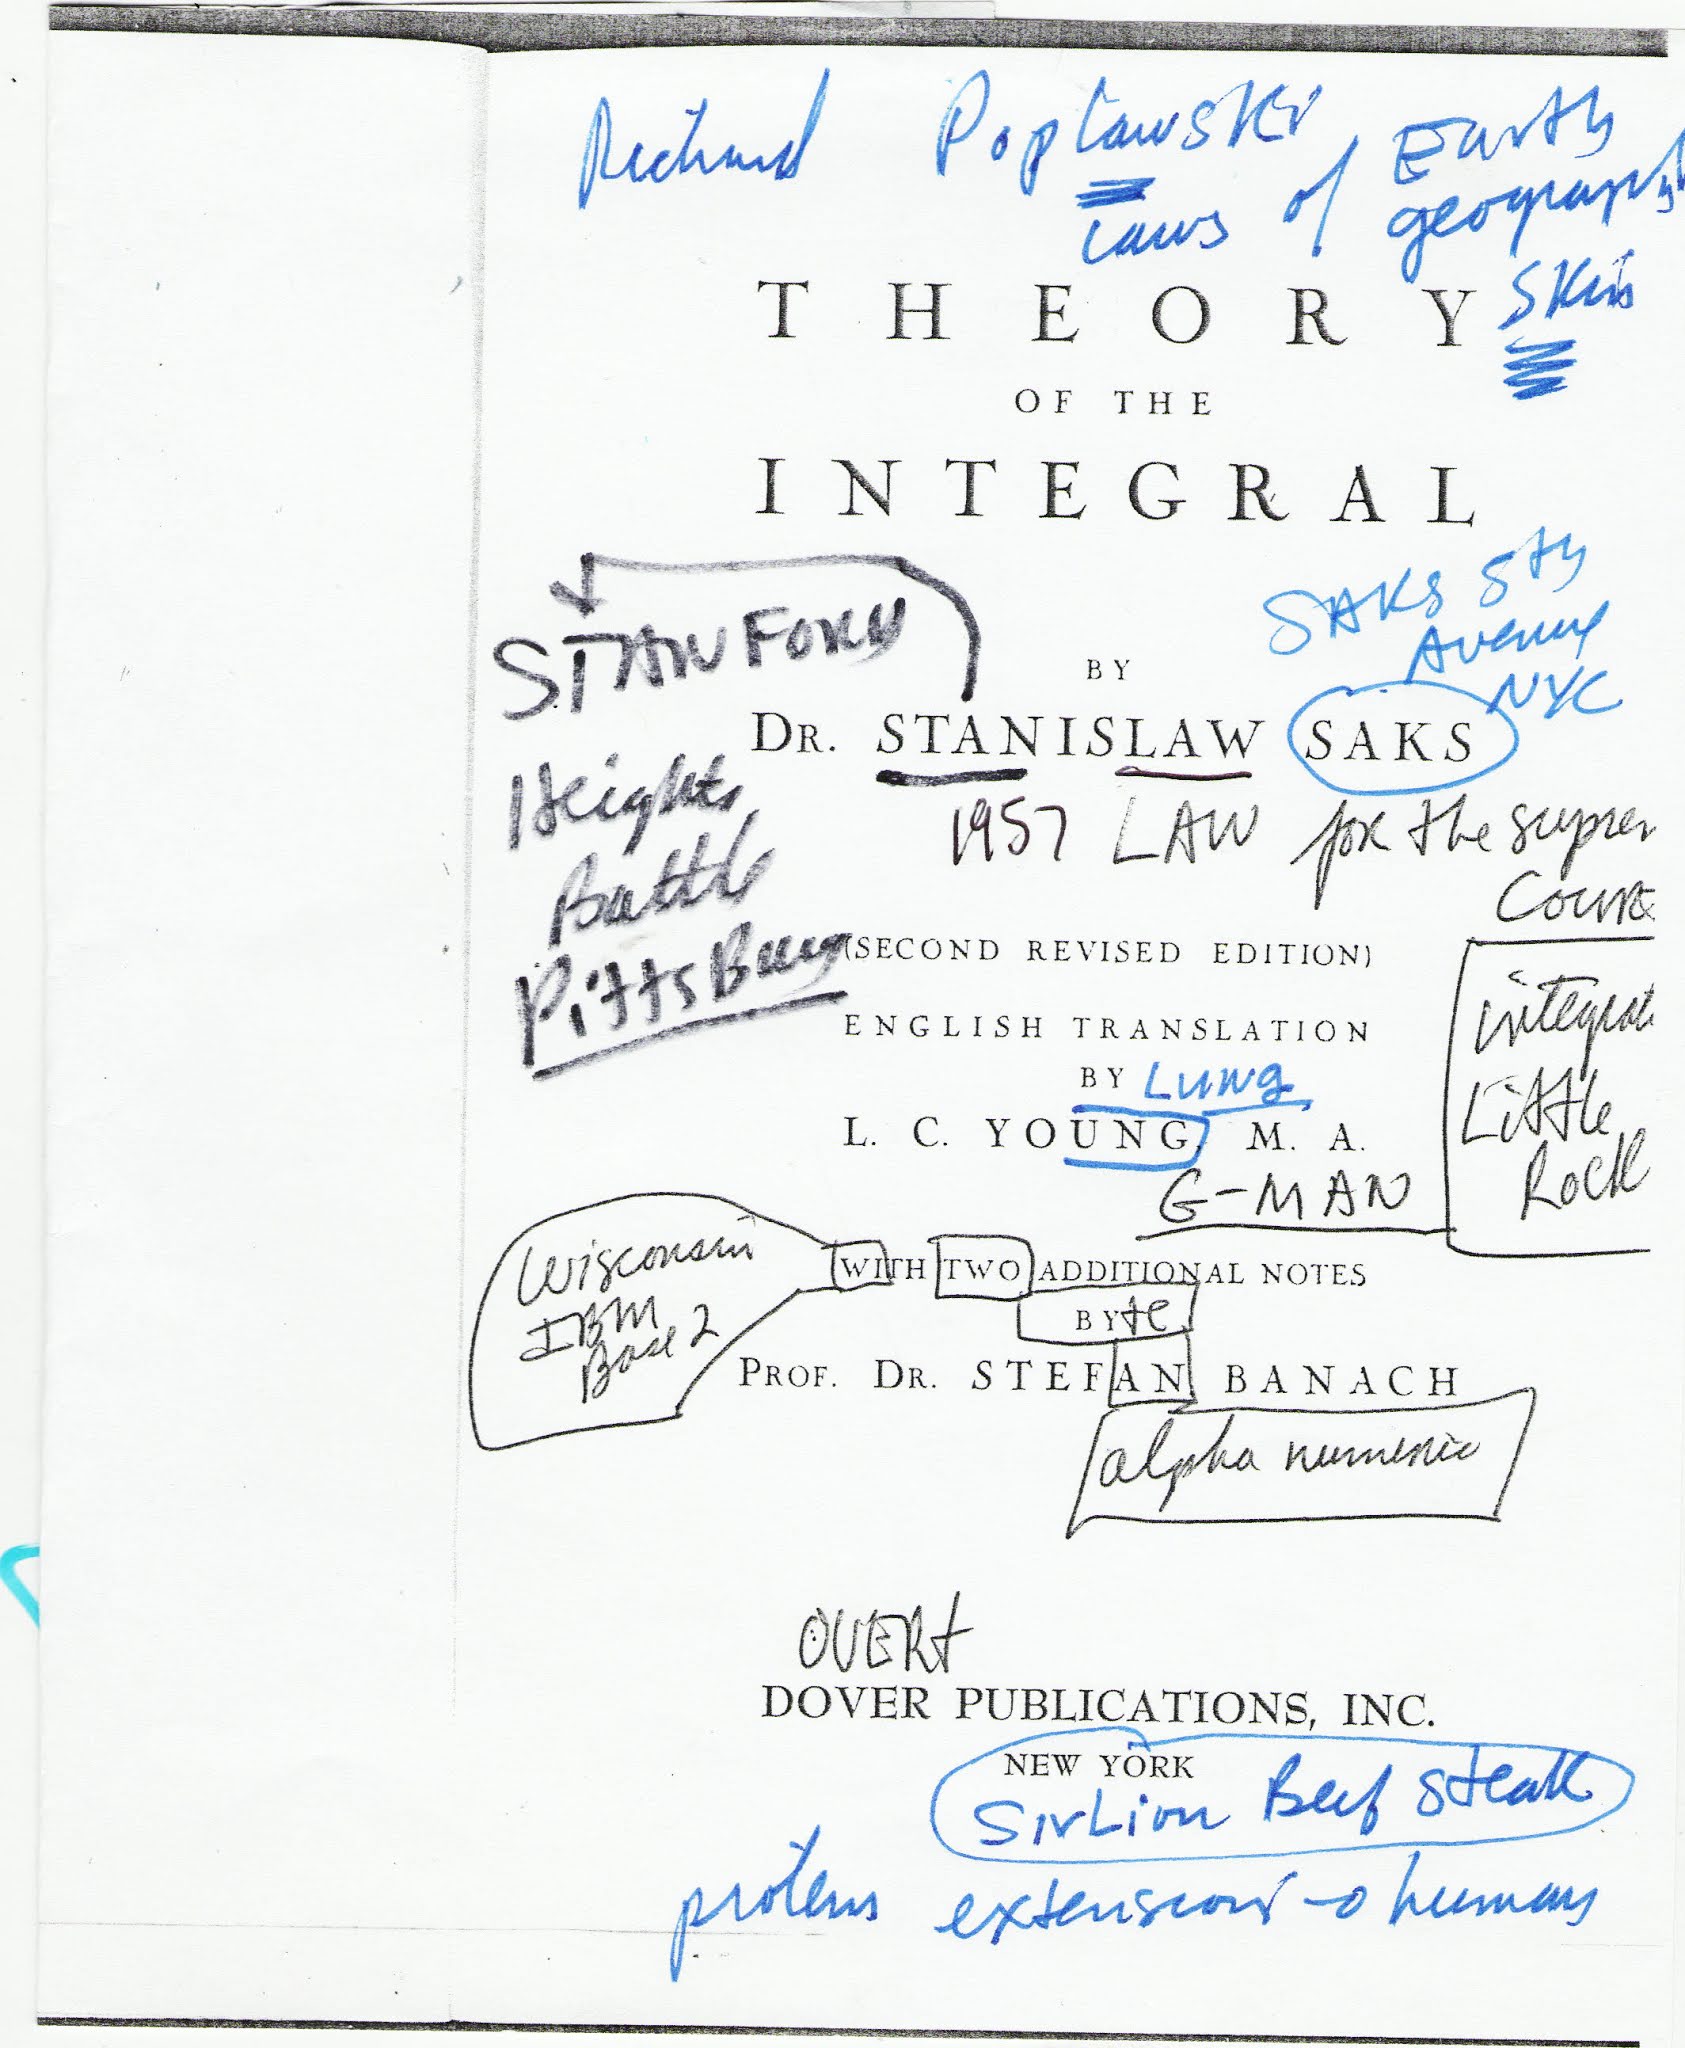 Richard Poplawski
laws of Earth
geography
skis
THEORY
OF THE
INTEGRAL
SAKS 5th
Avenue
NYC
STANFORD
BY
DR. STANISLAW SAKS
Heights
Battle
PittsBurg
1957 LAW for the suprem
Court
(SECOND REVISED EDITION)
ENGLISH TRANSLATION
integrat
Little
Rock
BY Lung
L. C. YOUNG, M. A.
G-MAN
WITH TWO ADDITIONAL NOTES
Wisconsin
IBM
Base 2
BYte
PROF. DR. STEFAN BANACH
alpha numeric
OVERt
DOVER PUBLICATIONS, INC.
NEW YORK
SirLion Beef steak
proteins extension → humans